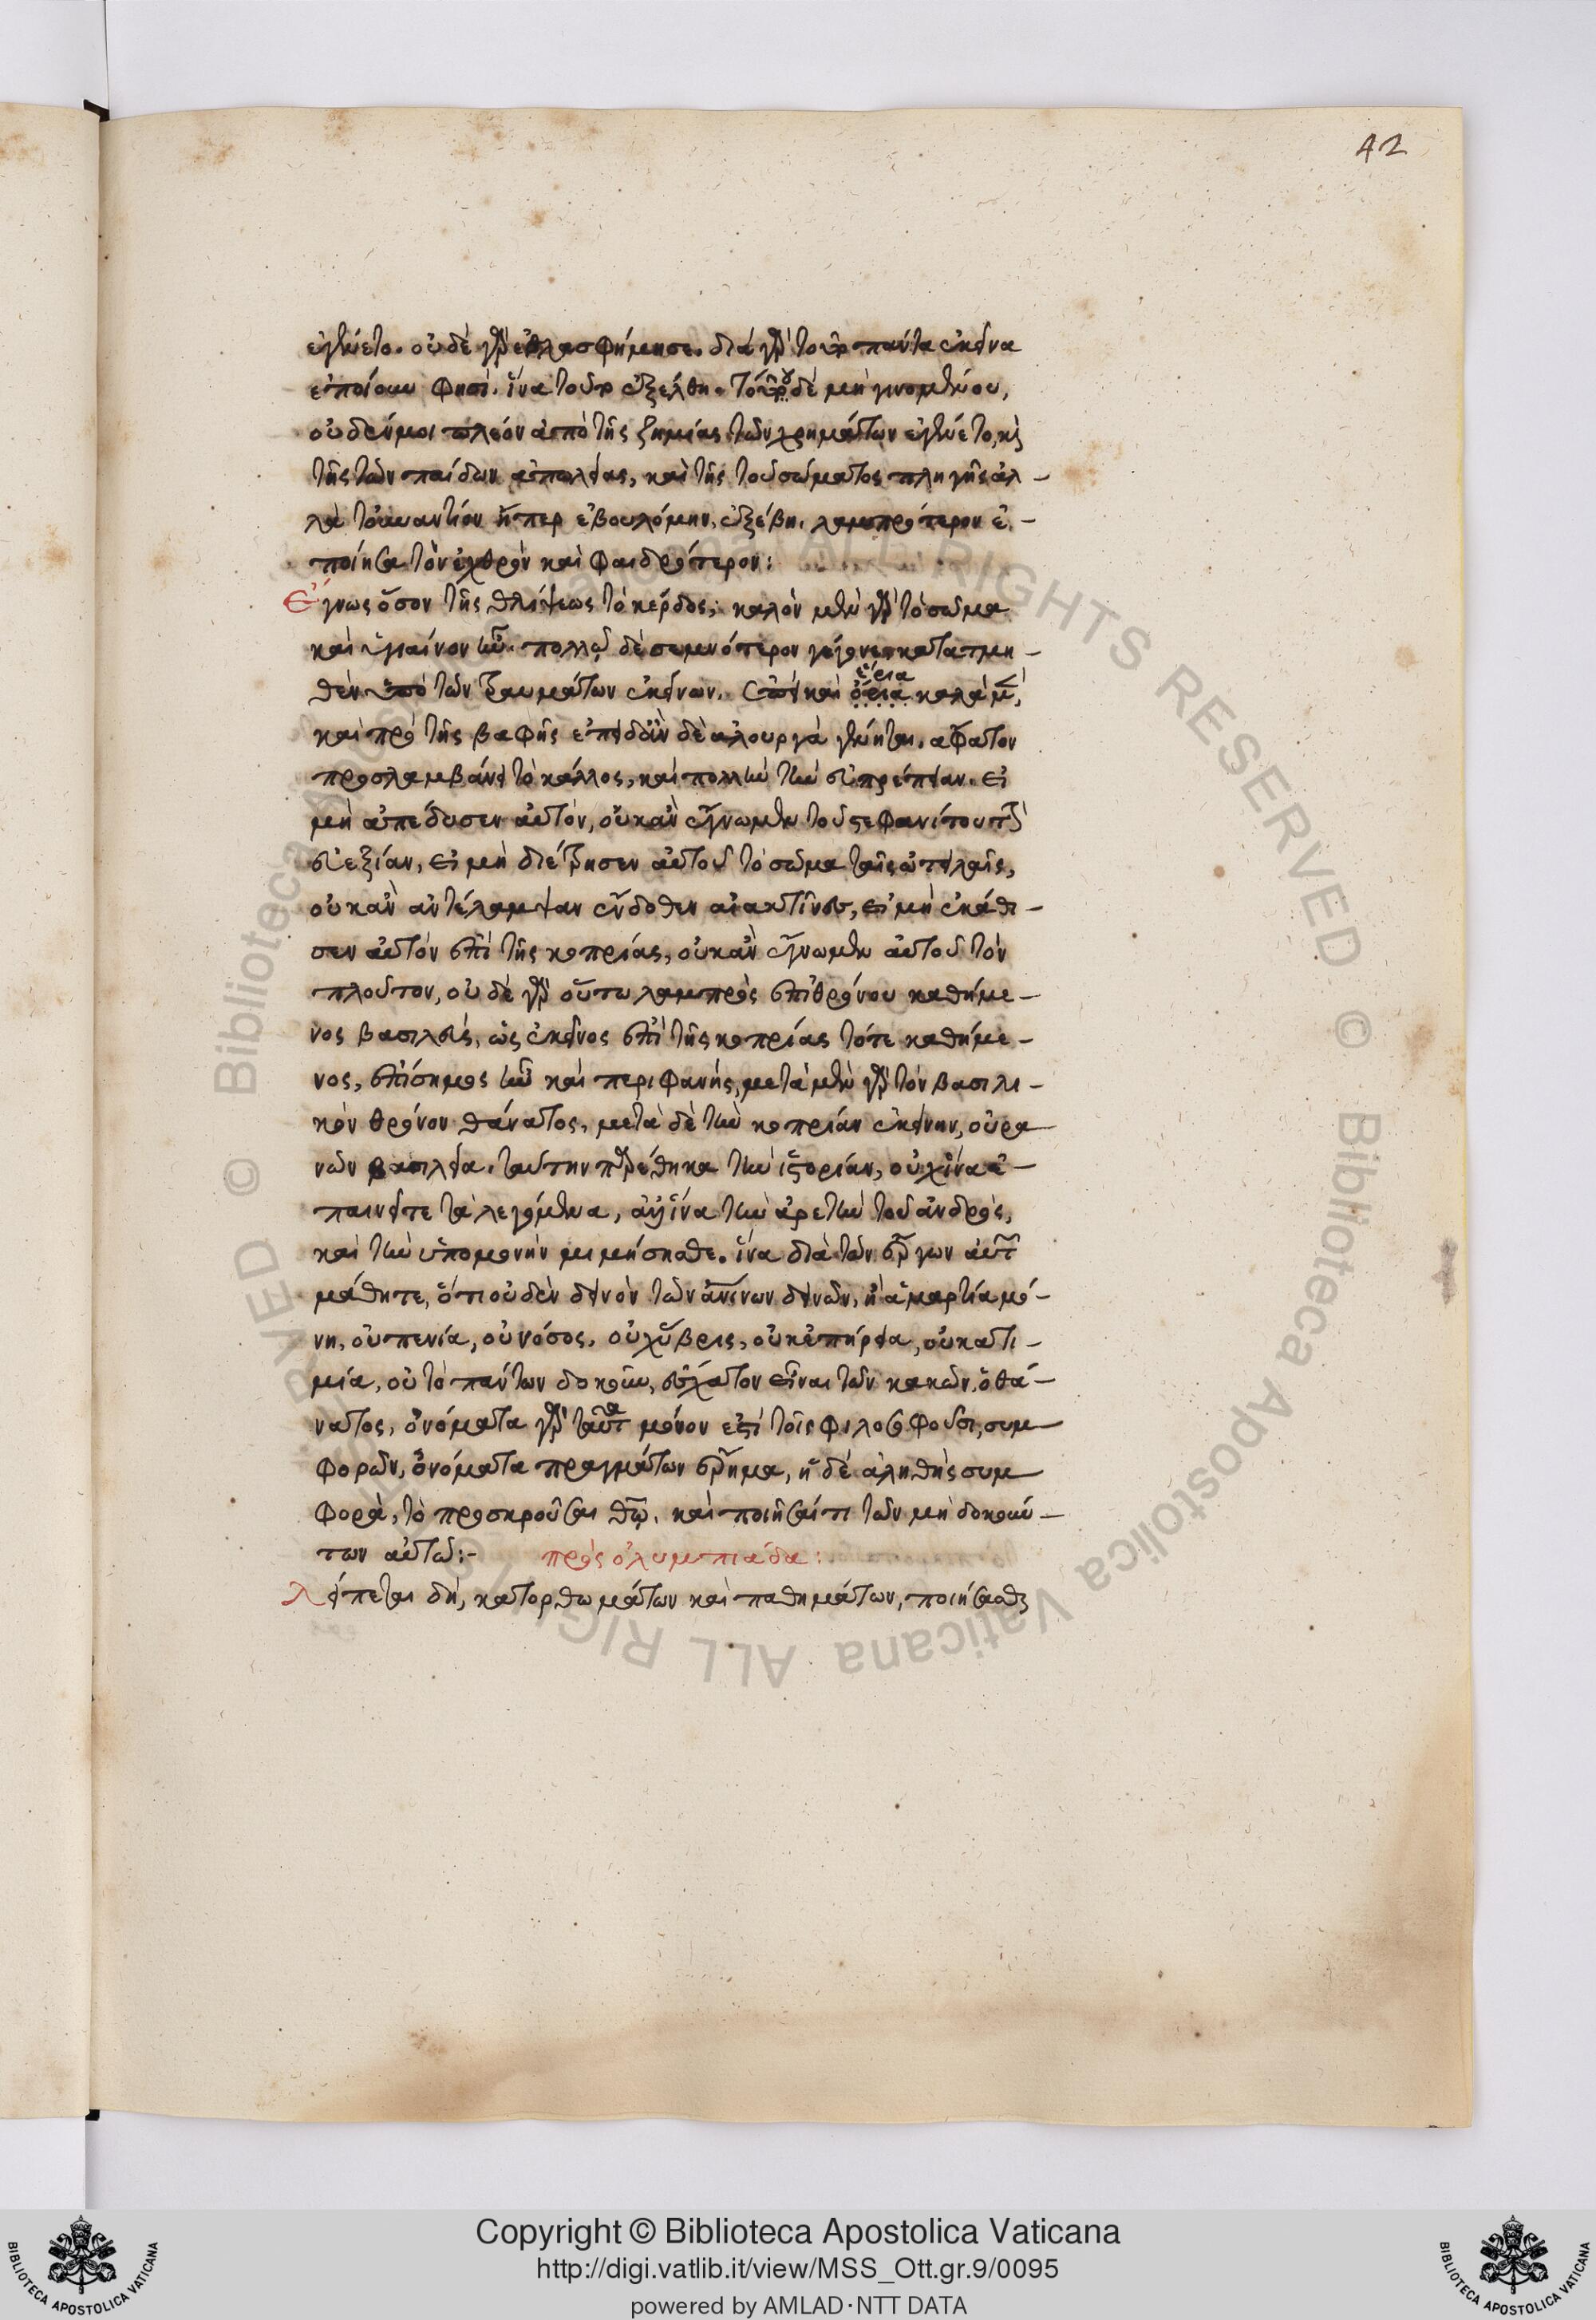 42
ἐγένετο. οὐδὲ γὰρ ἐβλασφήμησε. διὰ γὰρ τοῦτο πάντα ἐκεῖνα
ἐποίουν φησὶ. ἵνα τοῦτο ἐξέλθη. τούτου δὲ μὴ γινομένου,
οὐδέν μοι πλέον ἀπὸ τῆς ζημίας τῶν χρημάτων ἐγένετο, καὶ
τῆς τῶν παίδων ἀπωλείας, καὶ τῆς τοῦ σώματος πληγῆς ἀλ-
λὰ τοὐναντίον ἤπερ ἐβουλόμην, ἐξέβη. λαμπρότερον ἐ-
ποίησα τὸν ἐχθρὸν καὶ φαιδρότερον:
Ἔγνως ὅσον τῆς θλίψεως τὸ κέρδος; καλὸν μὲν γὰρ τὸ σῶμα
καὶ ὑγιαῖνον ἦν. πολλῷ δὲ σεμνότερον γέγονε κατατμη-
θὲν ὑπὸ τῶν τραυμάτων ἐκείνων. ἐπεὶ καὶ ἔρια καλὰ μὲν,
καὶ πρὸ τῆς βαφῆς ἐπειδὰν δὲ ἁλουργὰ γένηται, ἄφατον
προσλαμβάνει τὸ κάλλος, καὶ πολλὴν τὴν εὐπρέπειαν. εἰ
μὴ ἀπέδυσεν αὐτὸν, οὐκ ἂν ἔγνωμεν τοῦ στεφανίτου τὴν
εὐεξίαν, εἰ μὴ διέτρησεν αὐτοῦ τὸ σῶμα ταῖς ὠτειλαῖς,
οὐκ ἂν ἀντέλαμψαν ἔνδοθεν αἱ ἀκτῖνες, εἰ μὴ ἐκάθι-
σεν αὐτὸν ἐπὶ τῆς κοπρίας, οὐκ ἂν ἔγνωμεν αὐτοῦ τὸν
πλοῦτον, οὐδὲ γὰρ οὕτω λαμπρὸς ἐπὶ θρόνου καθήμε-
νος βασιλεὺς, ὡς ἐκεῖνος ἐπὶ τῆς κοπρίας τότε καθήμε-
νος, ἐπίσημος ἦν καὶ περιφανής, μετὰ μὲν γὰρ τὸν βασιλι-
κὸν θρόνον θάνατος, μετὰ δὲ τὴν κοπρίαν ἐκείνην, οὐρα
νῶν βασιλεία. ταύτην παρέθηκα τὴν ἱστορίαν, οὐχ ἵνα ἐ-
παινεῖτε τὰ λεγόμενα, ἀλλ' ἵνα τὴν ἀρετὴν τοῦ ἀνδρὸς,
καὶ τὴν ὑπομονὴν μιμήσησθε. ἵνα διὰ τῶν ἔργων αὐτῶν
μάθητε, ὅτι οὐδὲν δεινὸν τῶν ἀνθρωπίνων δεινῶν, ἢ ἁμαρτία μό-
νη, οὐ πενία, οὐ νόσος, οὐχ ὕβρις, οὐκ ἐπήρεια, οὐκ ἀτι-
μία, οὐ τὸ πάντων δοκοῦν, ἔσχατον εἶναι τῶν κακῶν, ὁ θά-
νατος, ὀνόματα γὰρ ταῦτα μόνον ἐστὶ τοῖς φιλοσοφοῦσι, συμ-
φορῶν, ὀνόματα πραγμάτων ἔρημα, ἡ δὲ ἀληθὴς συμ
φορὰ, τὸ προσκροῦσαι θεῷ. καὶ ποιῆσαί τι τῶν μὴ δοκούν-
των αὐτῷ:- πρὸς ὀλυμπιάδα:
Λείπεται δὴ, κατορθωμάτων καὶ παθημάτων, ποιήσασθαι
Copyright © Biblioteca Apostolica Vaticana
http://digi.vatlib.it/view/MSS_Ott.gr.9/0095
powered by AMLAD·NTT DATA